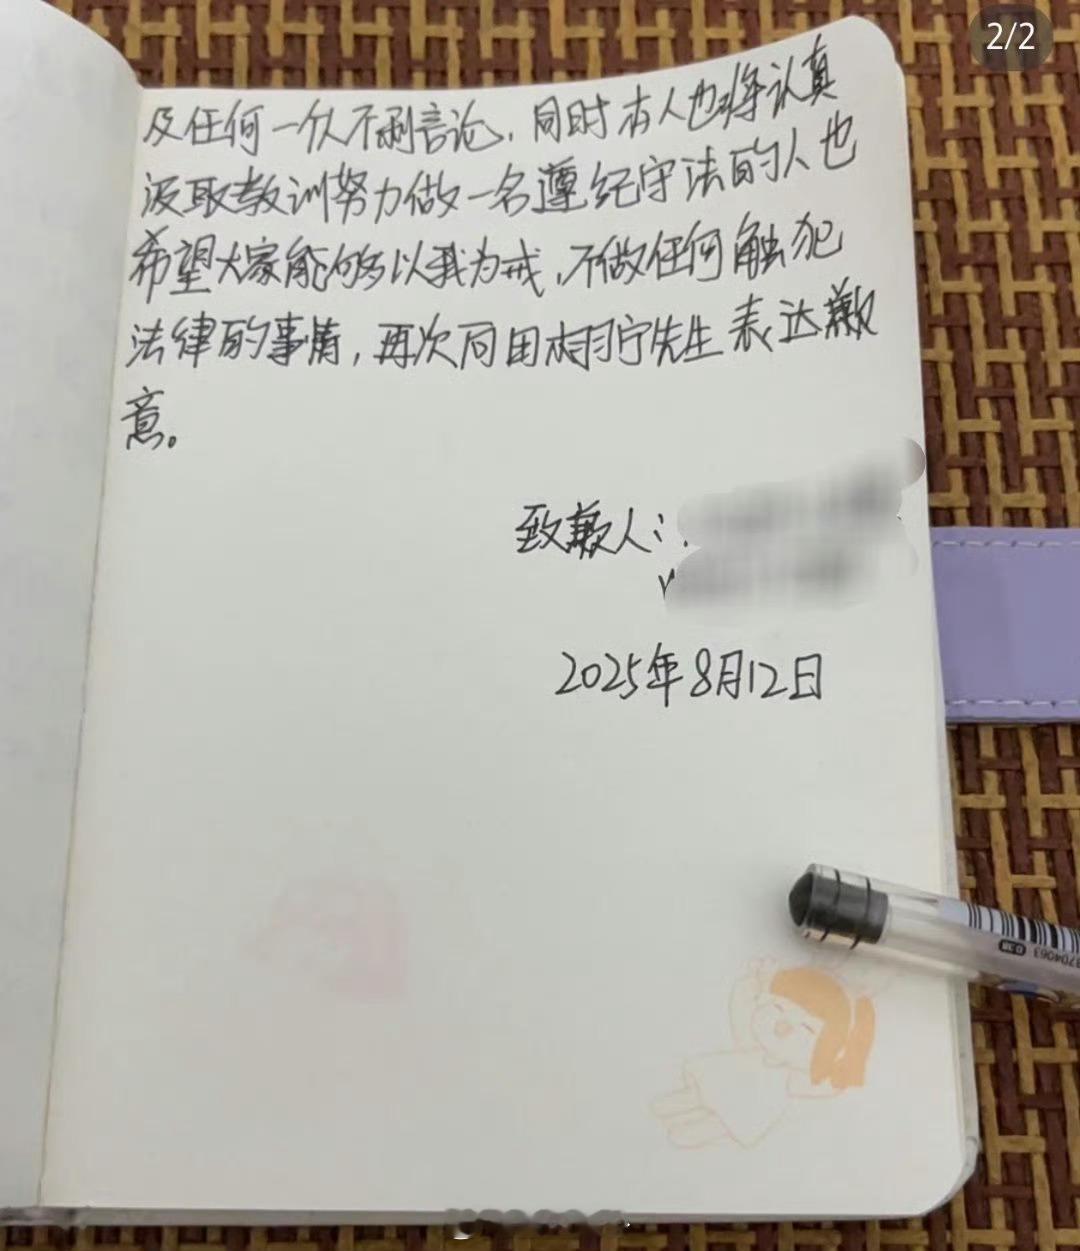 2/2
及任何一次不利言论，同时本人也将认真
汲取教训努力做一名遵纪守法的人也
希望大家能够以我为戒，不做任何触犯
法律的事情，再次向田栩宁先生表达歉
意。
致歉人：
2025年8月12日
0.38
8704063